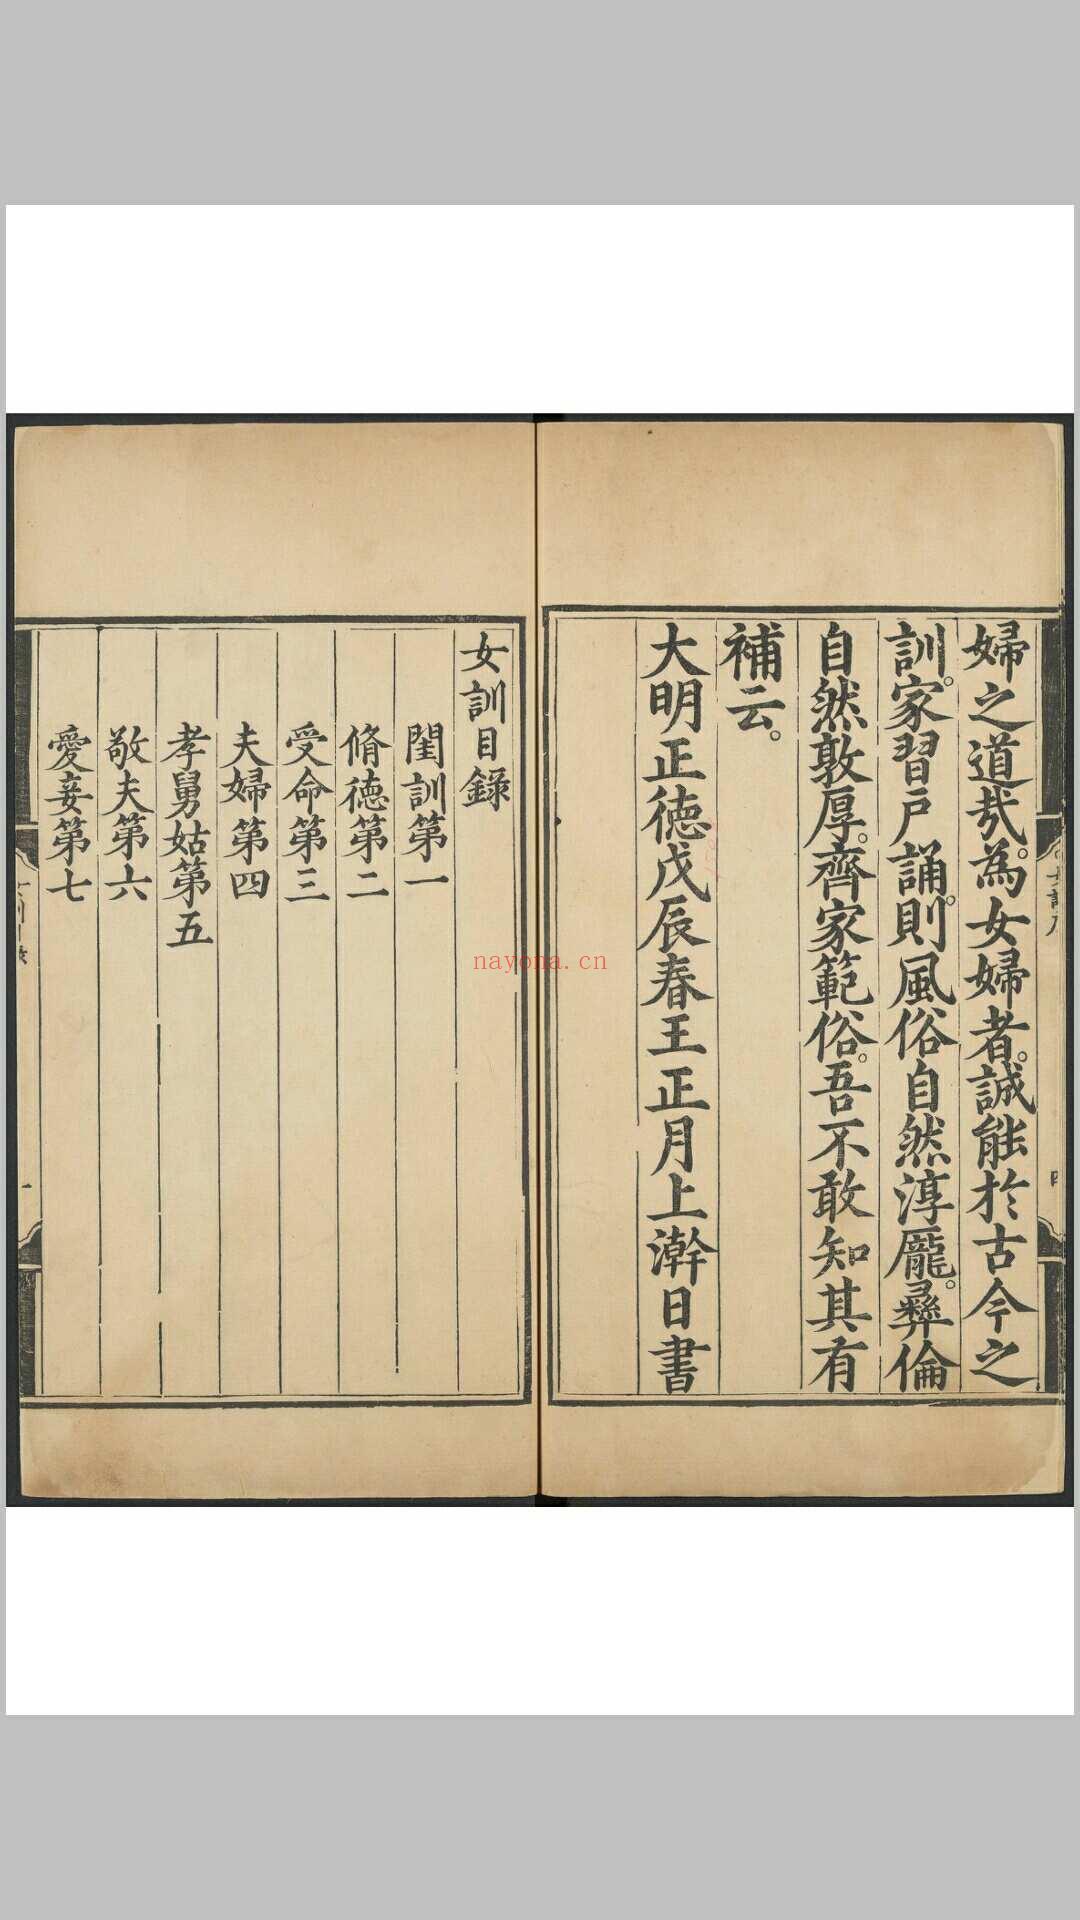 婦之道㢤。為女婦者。誠能於古今之
訓。家習戶誦。則風俗自然淳龐。彞倫
自然敦厚。齊家範俗。吾不敢知其有
補云。
大明正德戊辰春王正月上澣日書
四
女訓目錄
閨訓第一
脩德第二
受命第三
夫婦第四
孝舅姑第五
敬夫第六
愛妾第七
一
nayona.cn